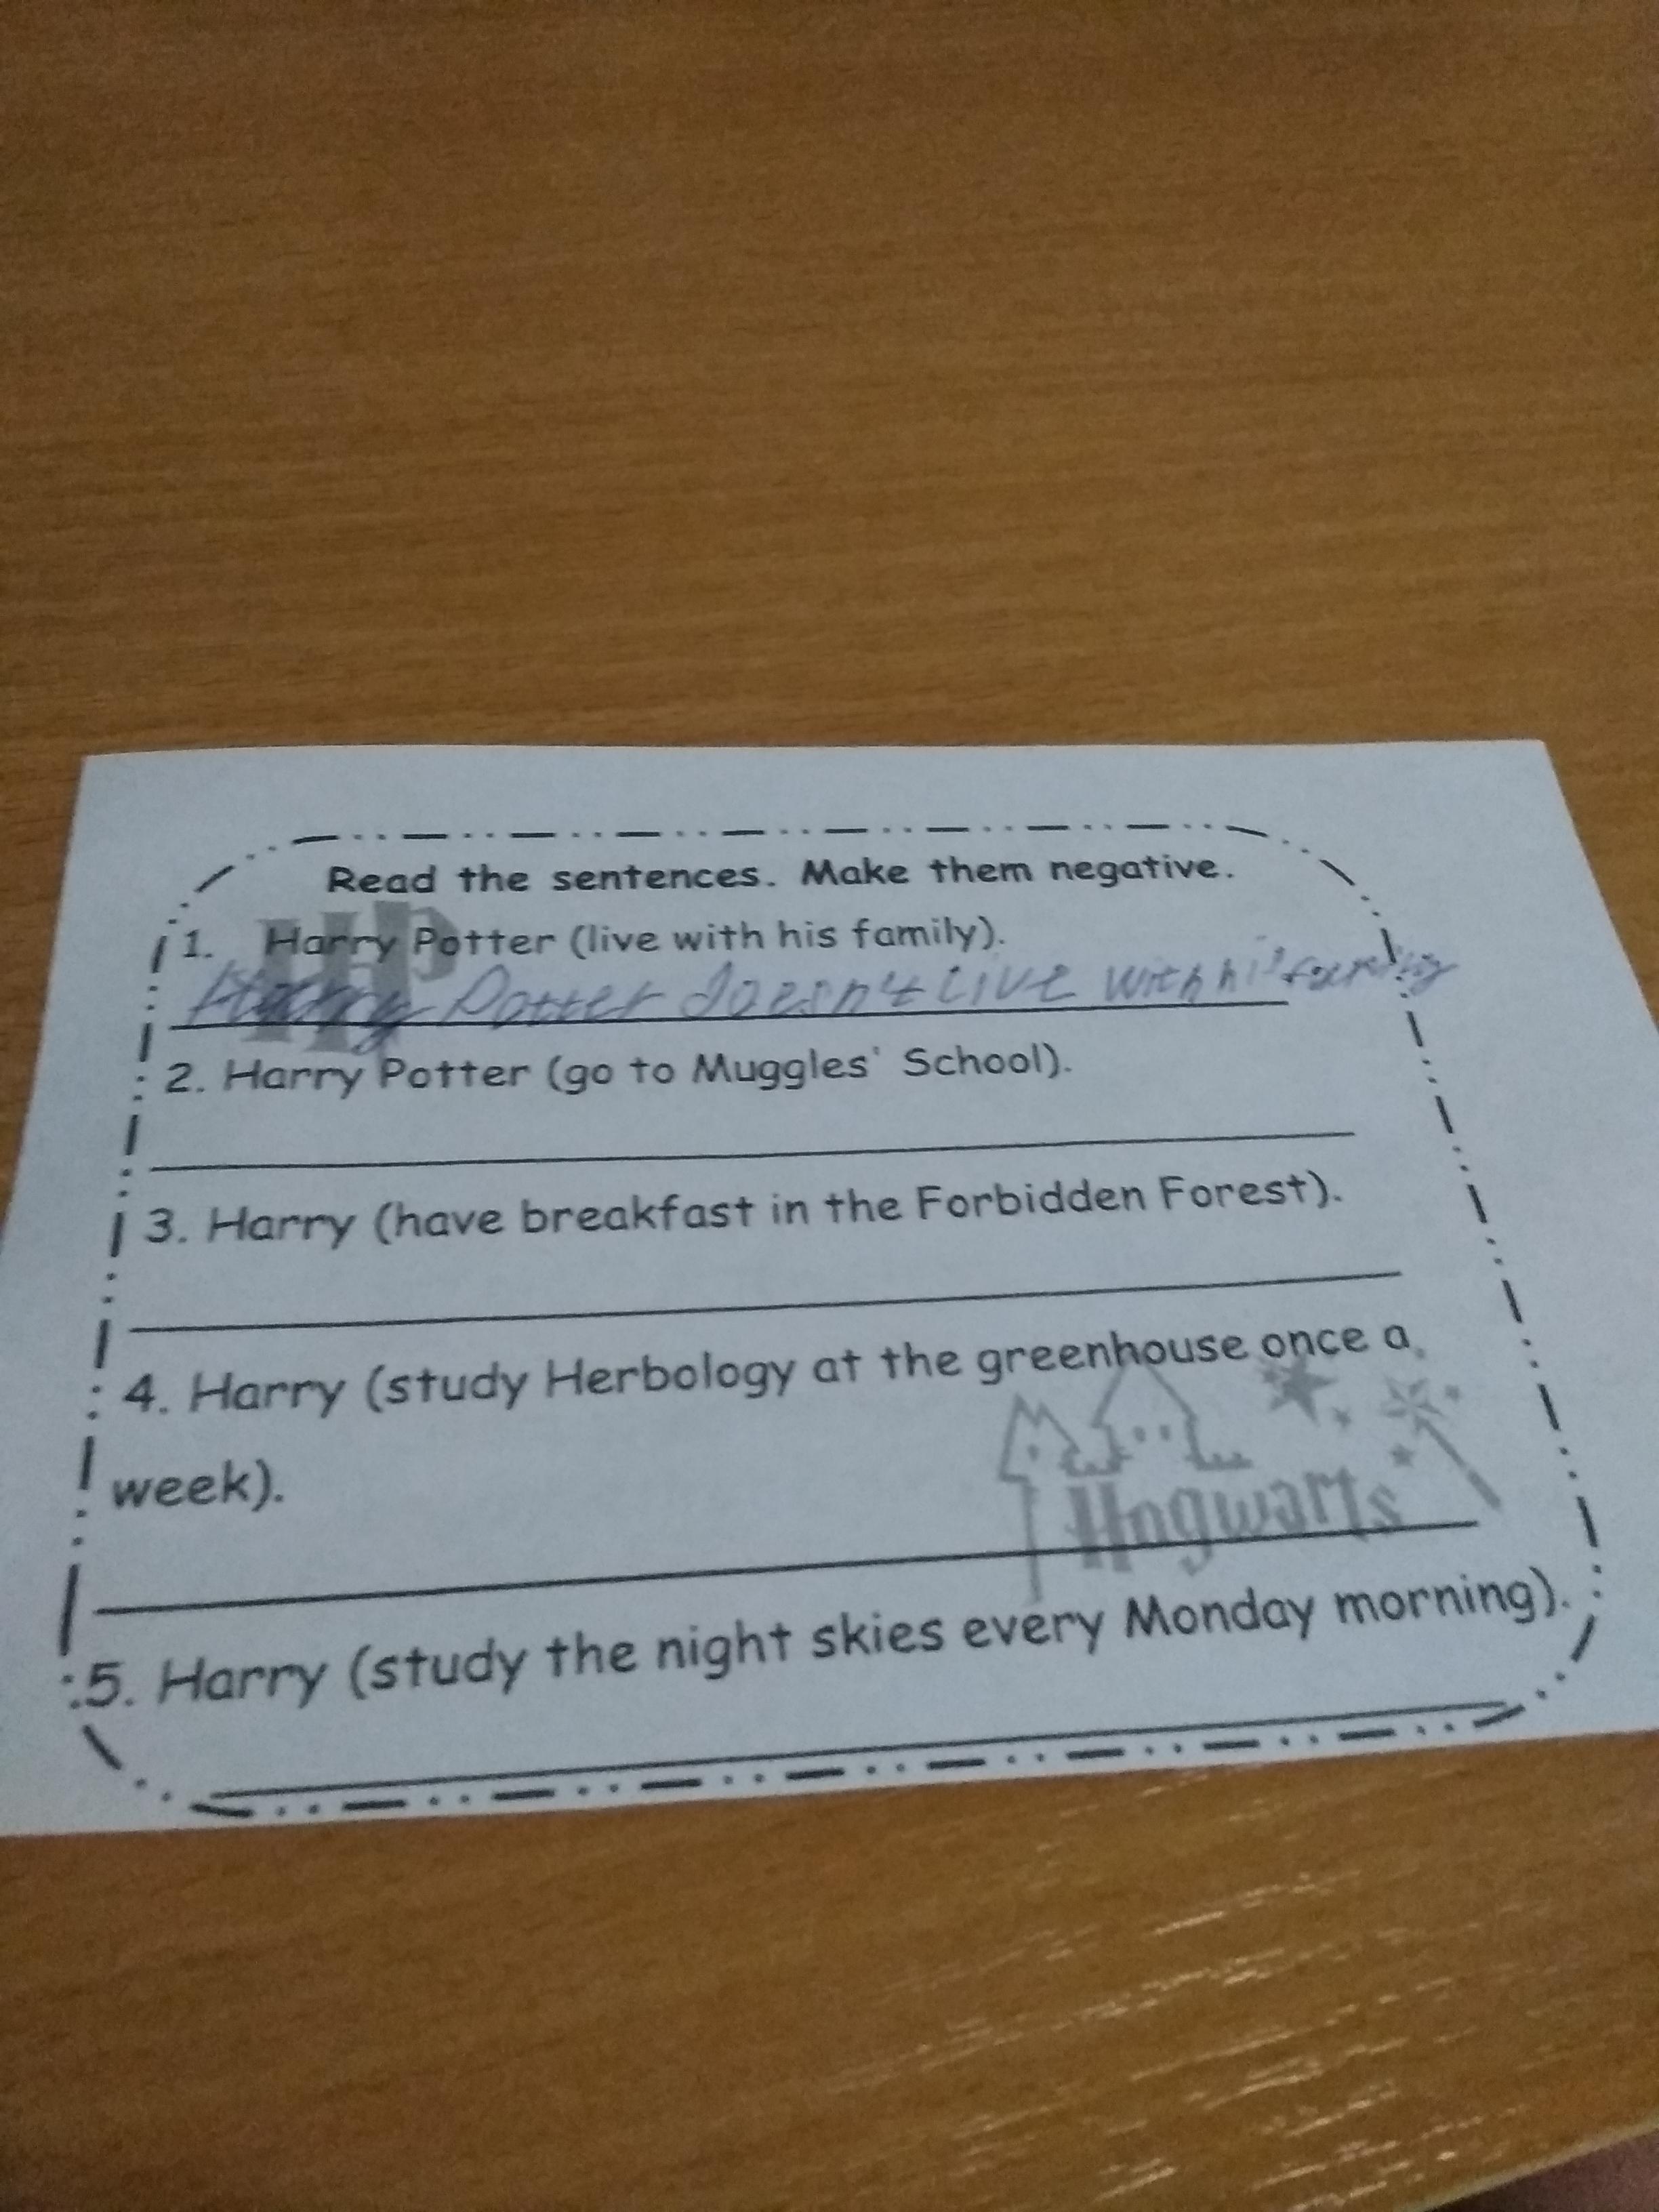 Read the sentences. Make them negative.
HP
1. Harry Potter (live with his family).
Harry Potter doesn't live with his family
2. Harry Potter (go to Muggles' School).
3. Harry (have breakfast in the Forbidden Forest).
4. Harry (study Herbology at the greenhouse once a
week).
Hogwarts
5. Harry (study the night skies every Monday morning).